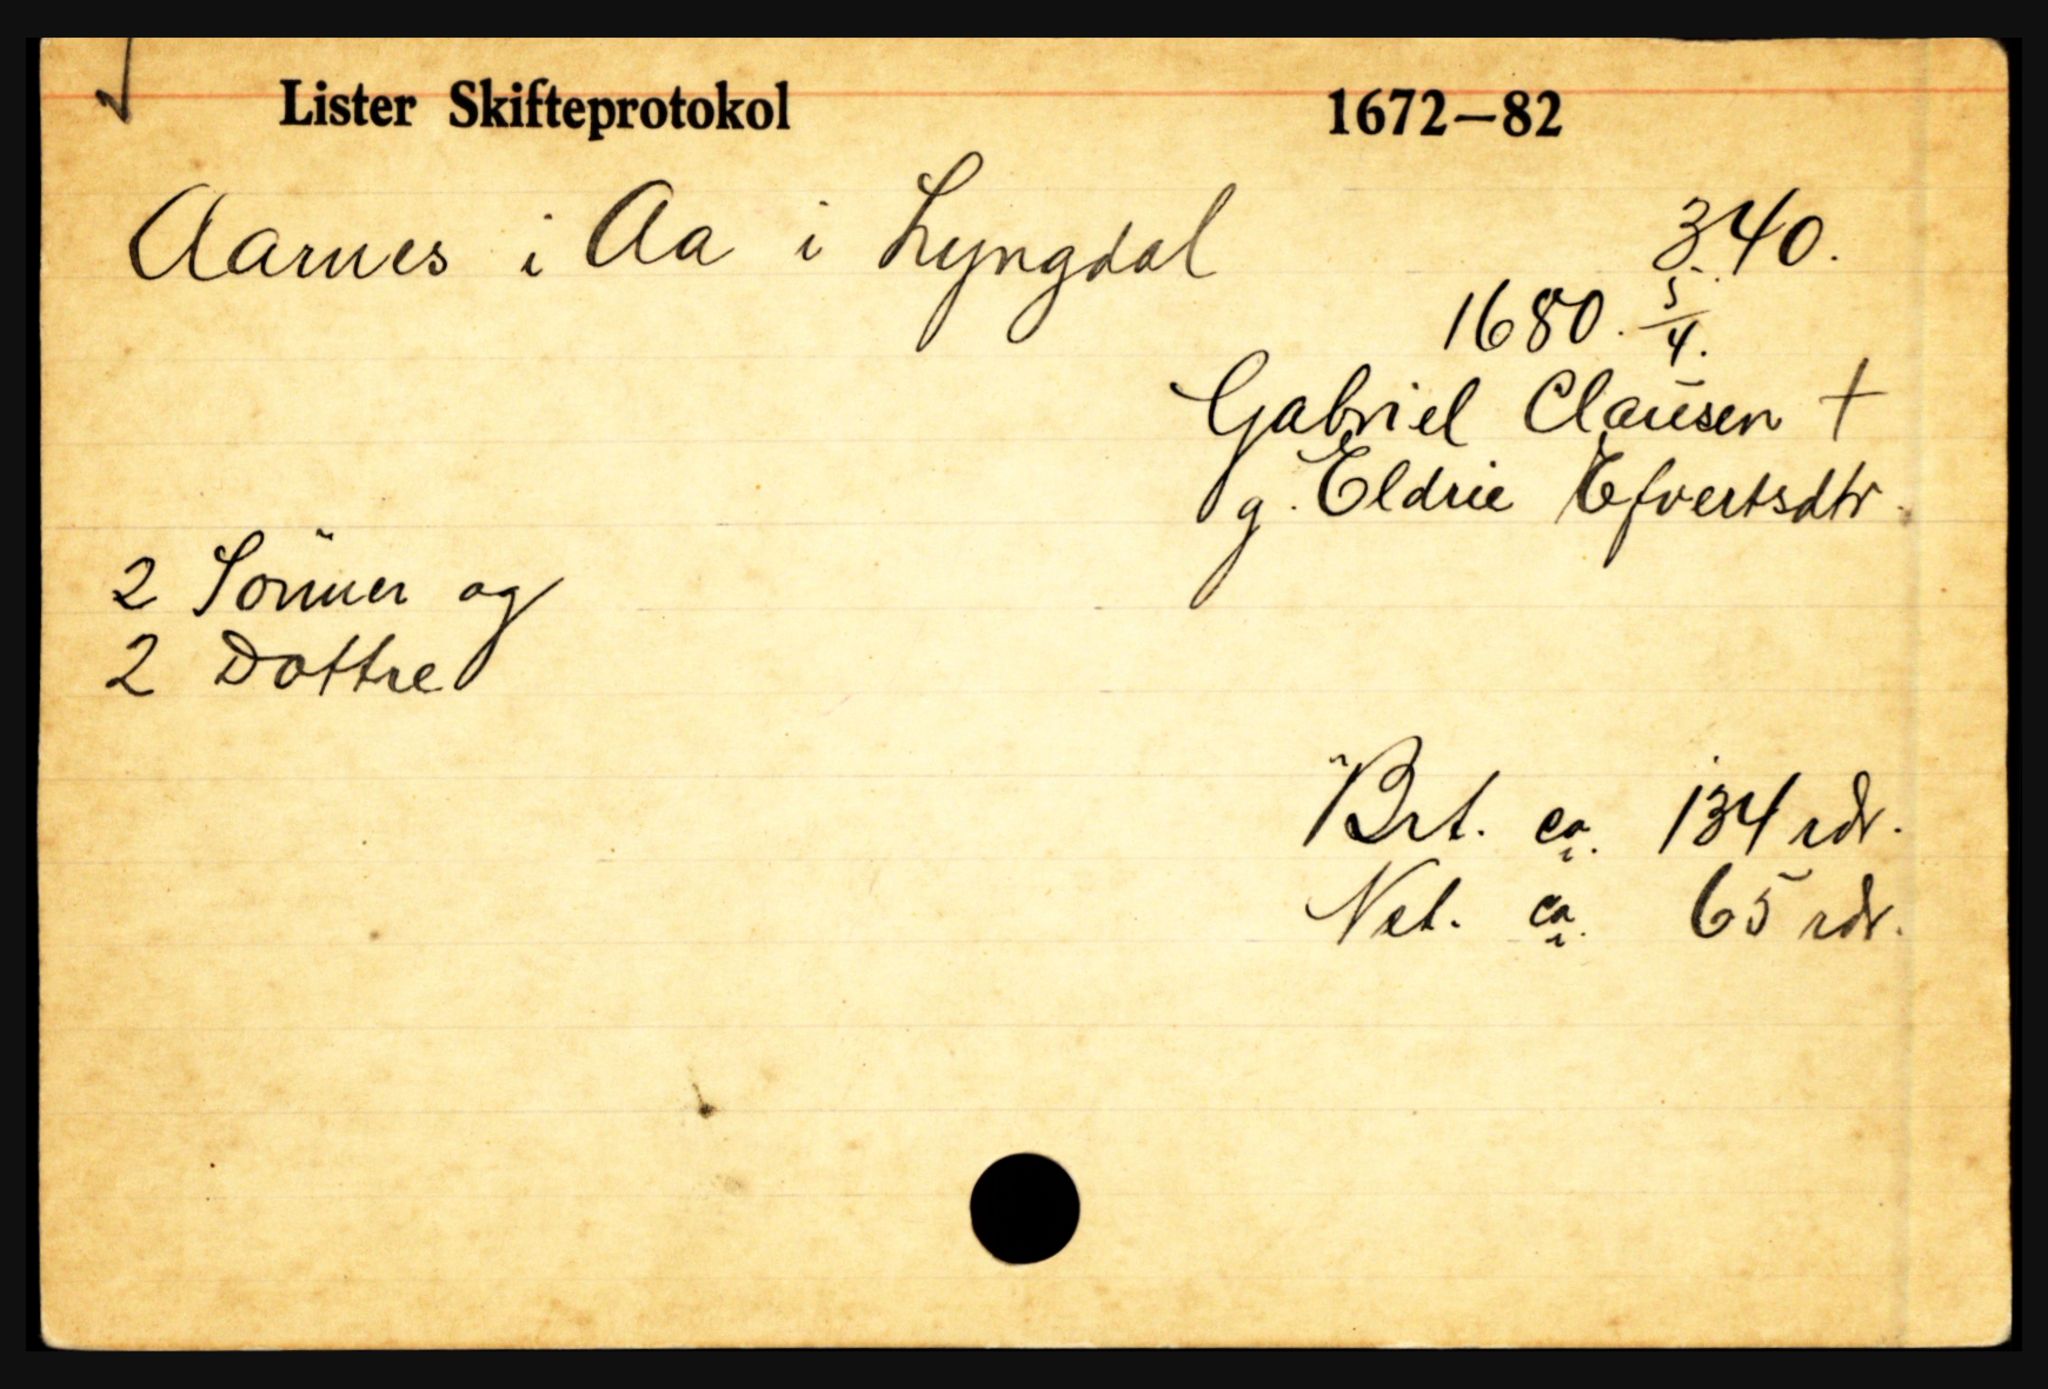 Lister Skifteprotokol 1672—82
Aarnes i Aa i Lyngdal 340.
1680. 5/4.
Gabriel Clausen †
g. Eldrie Efvertsdtr.
2 Sönner og
2 Dottre
Brt. ca. 134 rdr.
Net. ca. 65 rdr.